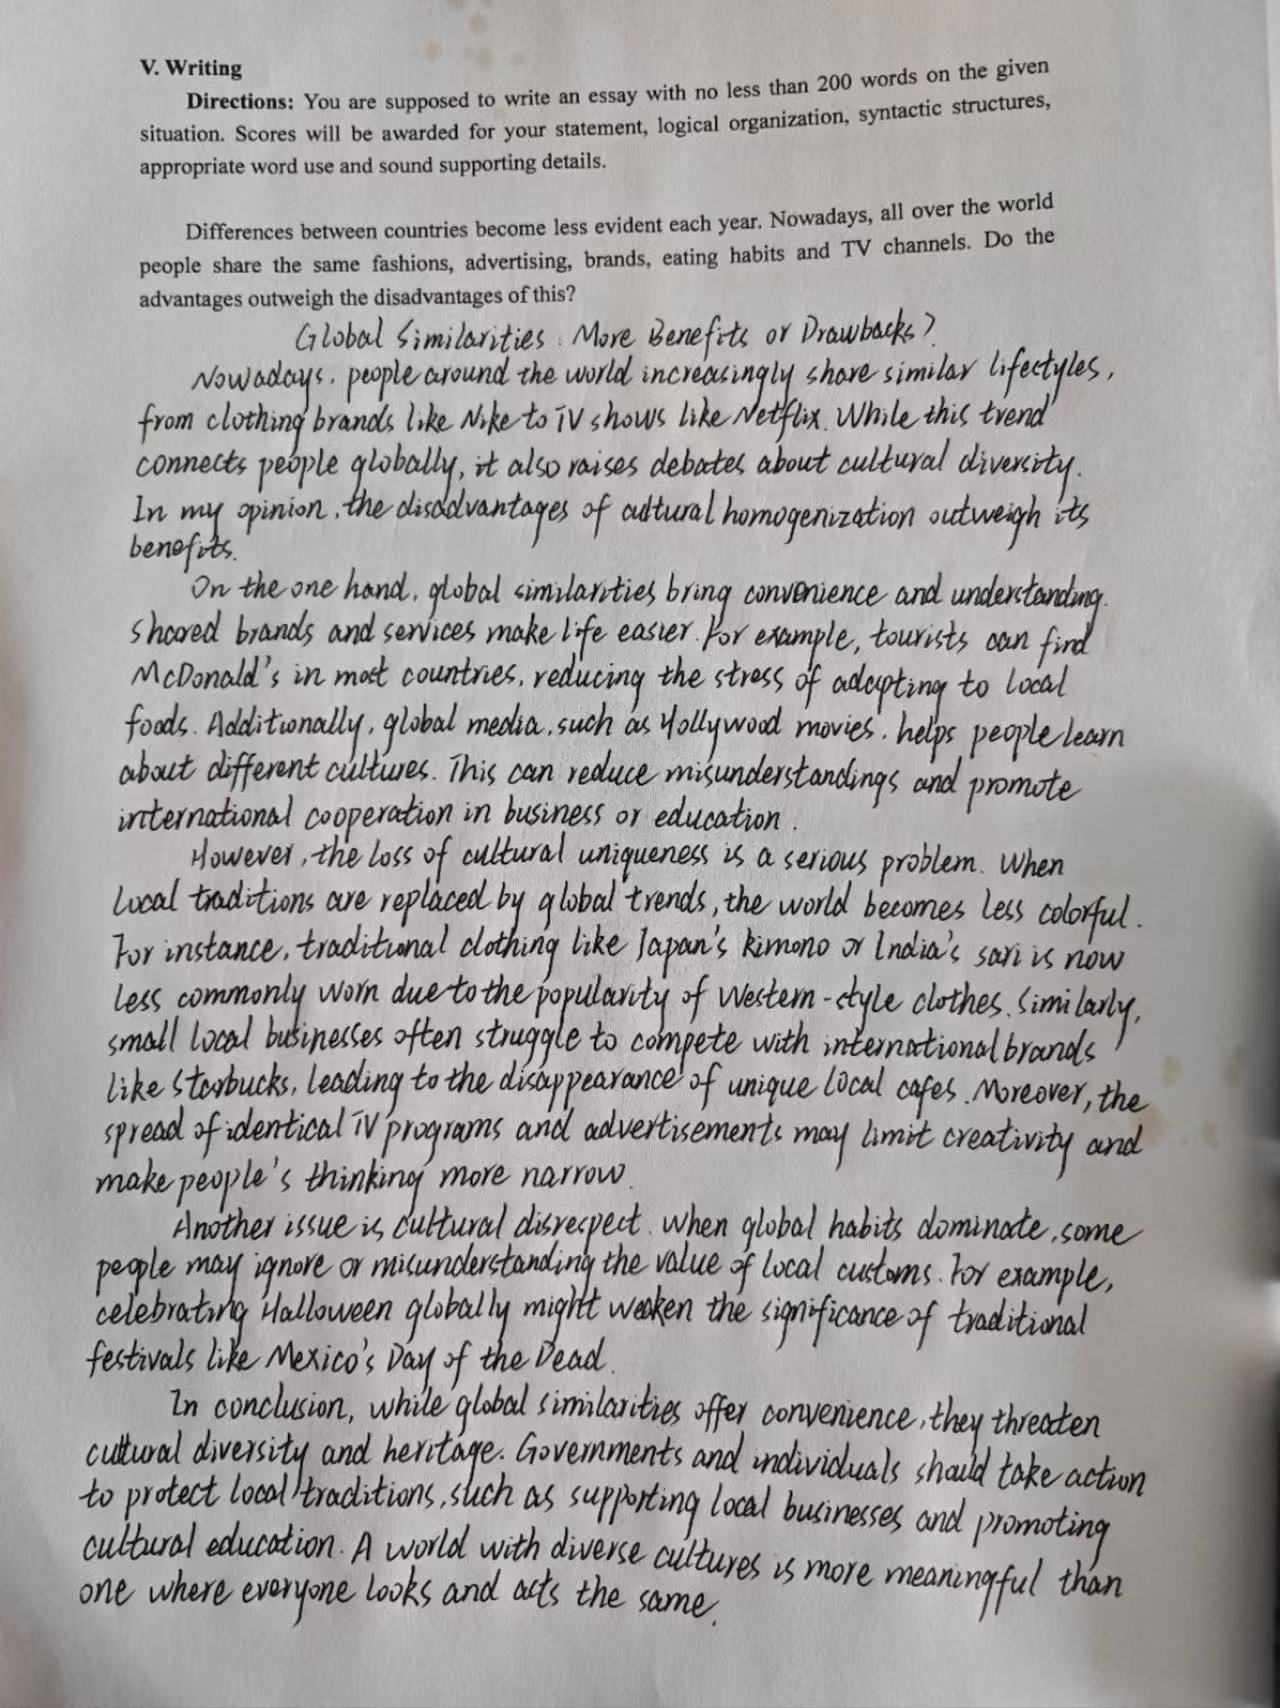 V. Writing
Directions: You are supposed to write an essay with no less than 200 words on the given
situation. Scores will be awarded for your statement, logical organization, syntactic structures,
appropriate word use and sound supporting details.
Differences between countries become less evident each year. Nowadays, all over the world
people share the same fashions, advertising, brands, eating habits and TV channels. Do the
advantages outweigh the disadvantages of this?
Global Similarities: More Benefits or Drawbacks?
Nowadays, people around the world increasingly share similar lifestyles,
from clothing brands like Nike to TV shows like Netflix. While this trend
connects people globally, it also raises debates about cultural diversity.
In my opinion, the disadvantages of cultural homogenization outweigh its
benefits.
On the one hand, global similarities bring convenience and understanding.
Shared brands and services make life easier. For example, tourists can find
McDonald's in most countries, reducing the stress of adapting to local
foods. Additionally, global media, such as Hollywood movies, helps people learn
about different cultures. This can reduce misunderstandings and promote
international cooperation in business or education.
However, the loss of cultural uniqueness is a serious problem. When
local traditions are replaced by global trends, the world becomes less colorful.
For instance, traditional clothing like Japan's kimono or India's sari is now
less commonly worn due to the popularity of Western-style clothes. Similarly,
small local businesses often struggle to compete with international brands
like Starbucks, leading to the disappearance of unique local cafes. Moreover, the
spread of identical TV programs and advertisements may limit creativity and
make people's thinking more narrow.
Another issue is cultural disrespect. When global habits dominate, some
people may ignore or misunderstanding the value of local customs. For example,
celebrating Halloween globally might weaken the significance of traditional
festivals like Mexico's Day of the Dead.
In conclusion, while global similarities offer convenience, they threaten
cultural diversity and heritage. Governments and individuals should take action
to protect local traditions, such as supporting local businesses and promoting
cultural education. A world with diverse cultures is more meaningful than
one where everyone looks and acts the same.